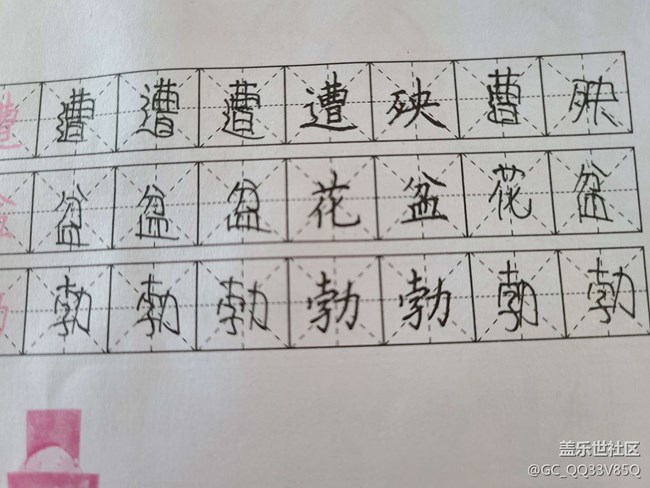 遭遭遭遭遭殃遭殃
盆盆盆盆花盆花盆
勃勃勃勃勃勃勃勃
盖乐世社区
@GC_QQ33V85Q